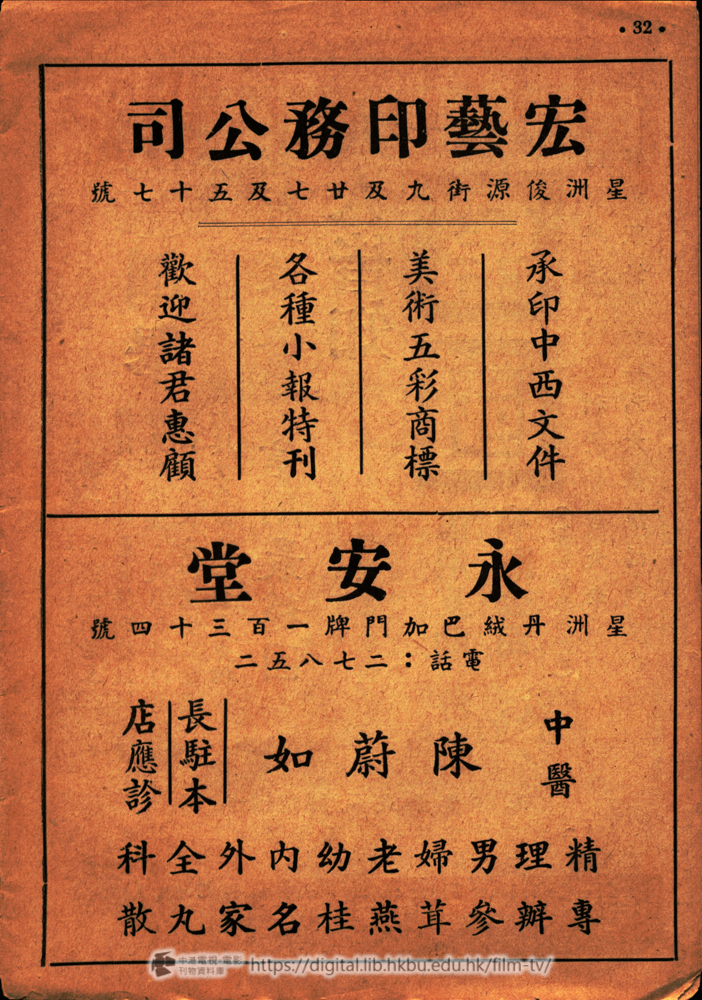 • 32 •
宏藝印務公司
星洲俊源街九及廿七及五十七號
承印中西文件
美術五彩商標
各種小報特刊
歡迎諸君惠顧
永安堂
星洲丹絨巴加門牌一百三十四號
電話：二七八五二
中醫
陳蔚如
長駐本
店應診
精理男婦老幼內外全科
專辦參茸燕桂名家丸散
中港電視·電影
刊物資料庫
https://digital.lib.hkbu.edu.hk/film-tv/